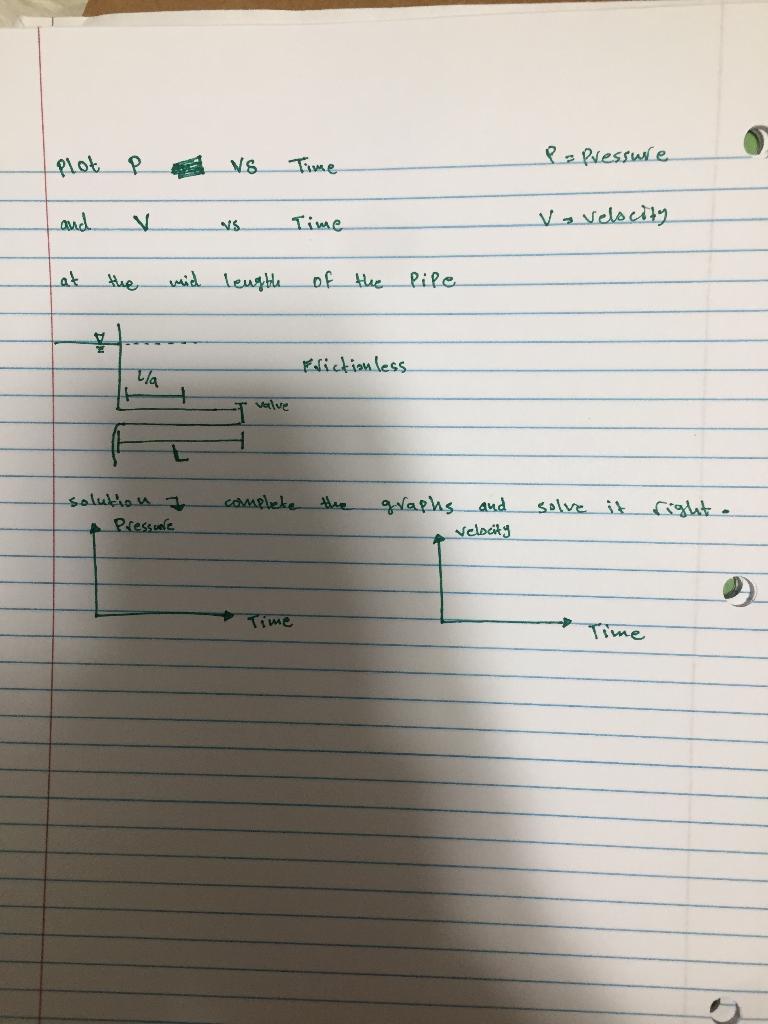 Plot P vs Time P = Pressure
and V vs Time V = velocity
at the mid length of the Pipe
Frictionless
L/a
valve
L
solution complete the graphs and solve it right.
Pressure
velocity
Time
Time